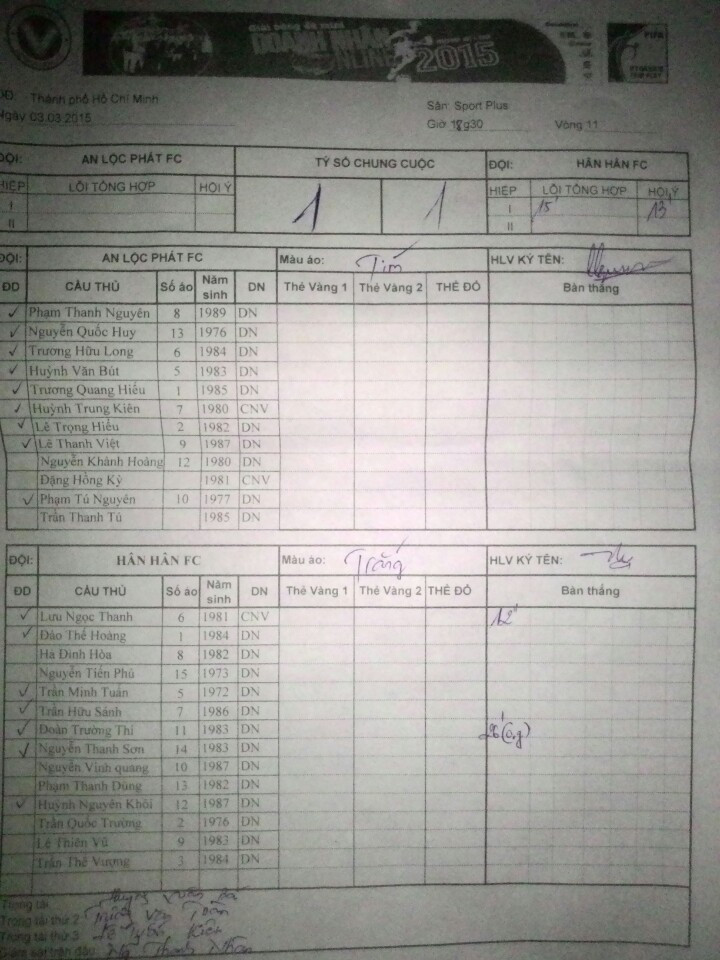 Giải bóng đá mini
DOANH NHÂN
ONLINE 2015
FIFA
Thành phố Hồ Chí Minh
Ngày 03.03.2015
Sân: Sport Plus
Giờ 18g30 Vòng 11
ĐỘI: AN LỘC PHÁT FC TỶ SỐ CHUNG CUỘC ĐỘI: HÂN HÂN FC
HIỆP LỖI TỔNG HỢP HỘI Ý 1 1 HIỆP LỖI TỔNG HỢP HỘI Ý
I I 15' 13'
II II
ĐỘI: AN LỘC PHÁT FC Màu áo: Tím HLV KÝ TÊN:
ĐD CẦU THỦ Số áo Năm sinh DN Thẻ Vàng 1 Thẻ Vàng 2 THẺ ĐỎ Bàn thắng
✓ Phạm Thanh Nguyên 8 1989 DN
✓ Nguyễn Quốc Huy 13 1976 DN
✓ Trương Hữu Long 6 1984 DN
✓ Huỳnh Văn Bút 5 1983 DN
✓ Trương Quang Hiếu 1 1985 DN
✓ Huỳnh Trung Kiên 7 1980 CNV
✓ Lê Trọng Hiếu 2 1982 DN
✓ Lê Thanh Việt 9 1987 DN
Nguyễn Khánh Hoàng 12 1980 DN
Đặng Hồng Kỳ 1981 CNV
✓ Phạm Tú Nguyên 10 1977 DN
Trần Thanh Tú 1985 DN
ĐỘI: HÂN HÂN FC Màu áo: Trắng HLV KÝ TÊN:
ĐD CẦU THỦ Số áo Năm sinh DN Thẻ Vàng 1 Thẻ Vàng 2 THẺ ĐỎ Bàn thắng
✓ Lưu Ngọc Thanh 6 1981 CNV 12'
✓ Đào Thế Hoàng 1 1984 DN
Hà Đình Hòa 8 1982 DN
Nguyễn Tiến Phú 15 1973 DN
✓ Trần Minh Tuấn 5 1972 DN
✓ Trần Hữu Sánh 7 1986 DN
✓ Đoàn Trường Thi 11 1983 DN 26' (o.g)
✓ Nguyễn Thanh Sơn 14 1983 DN
Nguyễn Vinh quang 10 1987 DN
Phạm Thanh Dũng 13 1982 DN
✓ Huỳnh Nguyên Khôi 12 1987 DN
Trần Quốc Trường 2 1976 DN
Lê Thiên Vũ 9 1983 DN
Trần Thế Vượng 3 1984 DN
Trọng tài
Trọng tài thứ 2:
Trọng tài thứ 3: Kiên
Giám sát trận đấu: Thanh Nhàn